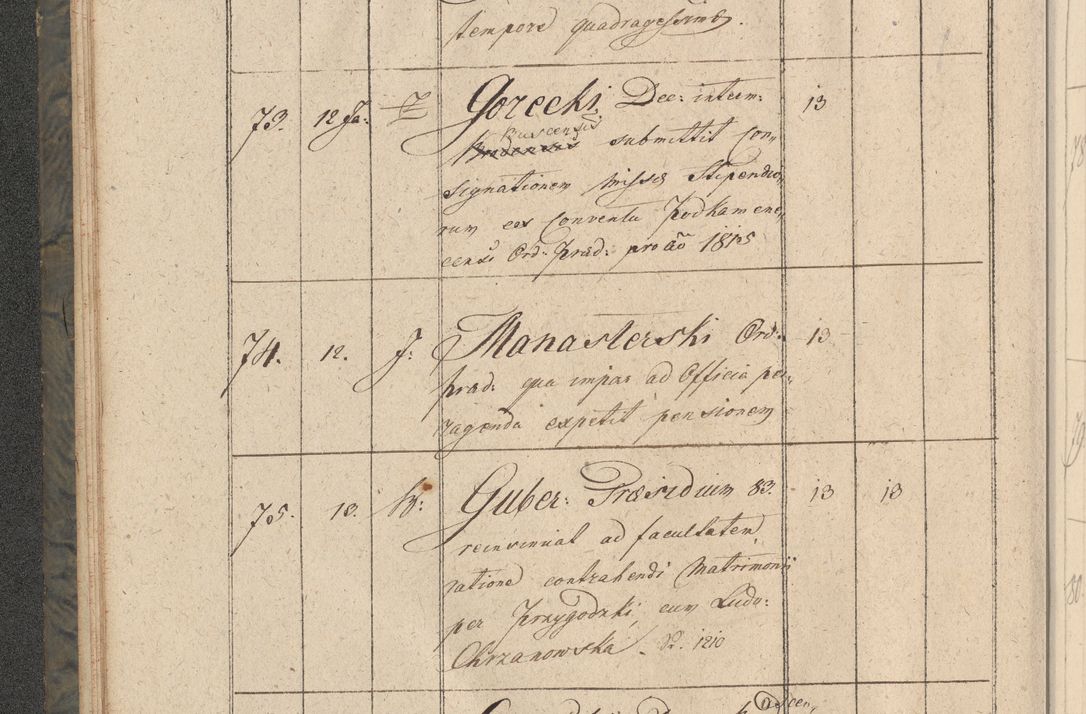 tempore quadragesimae.
73. 12 Ja: Gorecki Dec: interm: 13
Buscensis
submittit Con„
signationem missis Stipendio„
rum ex Conventu Podkamene„
censi Ord: Præd: pro aõ 1815
74. 12. J: Manasterski Ord: 13
Præd: qua impar ad Officia pe„
ragenda expetit pensionem
75. 13. Guber: Præsidium 83. 13 13
reinsinuat ad facultatem
ratione contrahendi Matrimonii
per Przygodzki cum Ludo:
Chrzanowska. 1210